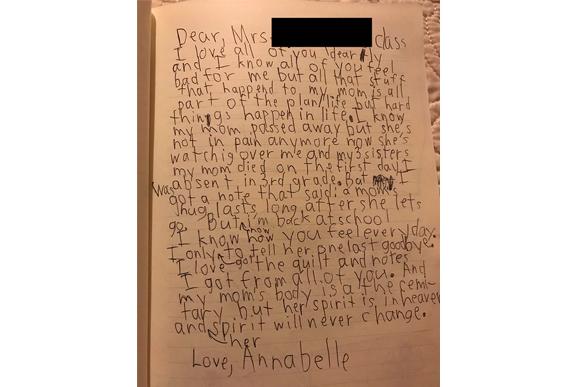 Dear, Mrs. class
I love all of you dearly
and I know all of you feel
bad for me but all that stuff
that happend to my mom is all
part of the plan/life but hard
things happen in life. I know
my mom passed away but she's
not in pain anymore now she's
watchig over me and my 3 sisters
my mom died on the first day I
was absent, in 3rd grade. But I
got a note that said: a mom's
hug lasts long after she lets
go. But I'm back at school
I know how you feel every day.
I only got to tell her one last goodbye.
I love the quilt and notes
I got from all of you. And
my mom's body is at the femi-
tary but her spirit is in heaven
and her spirit will never change.
Love, Annabelle